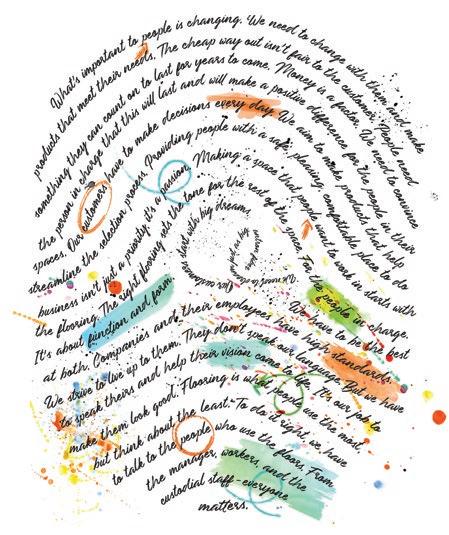 What's important to people is changing. We need to change with them and make
products that meet their needs. The cheap way out isn't fair to the customer. People need
something they can count on to last for years to come. Money is a factor. We need to convince
the person in charge that this will last and will make a positive difference for the people in their
spaces. Our customers have to make decisions every day. We aim to make products that help
streamline the selection process. Providing people with a safe, pleasing, comfortable place to do
business isn't just a priority, it's a passion. Making a space that people want to work in starts with
the flooring. The right flooring sets the tone for the rest of the space. For the people in charge.
Our customers start with big dreams.
We need to
just as big
It's about function and form. We have to be the best
at both. Companies and their employees have high standards.
We strive to live up to them. They don't speak our language. But we have
to speak theirs and help their vision come to life. It's our job to
make them look good. Flooring is what people use the most,
but think about the least. To do it right, we have
to talk to the people who use the floors. From
the manager, workers, and the
custodial staff - everyone
matters.